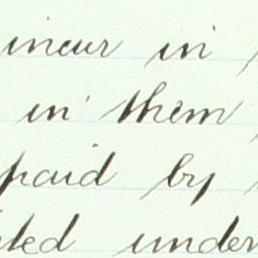 incur in
in them
paid by
ted under